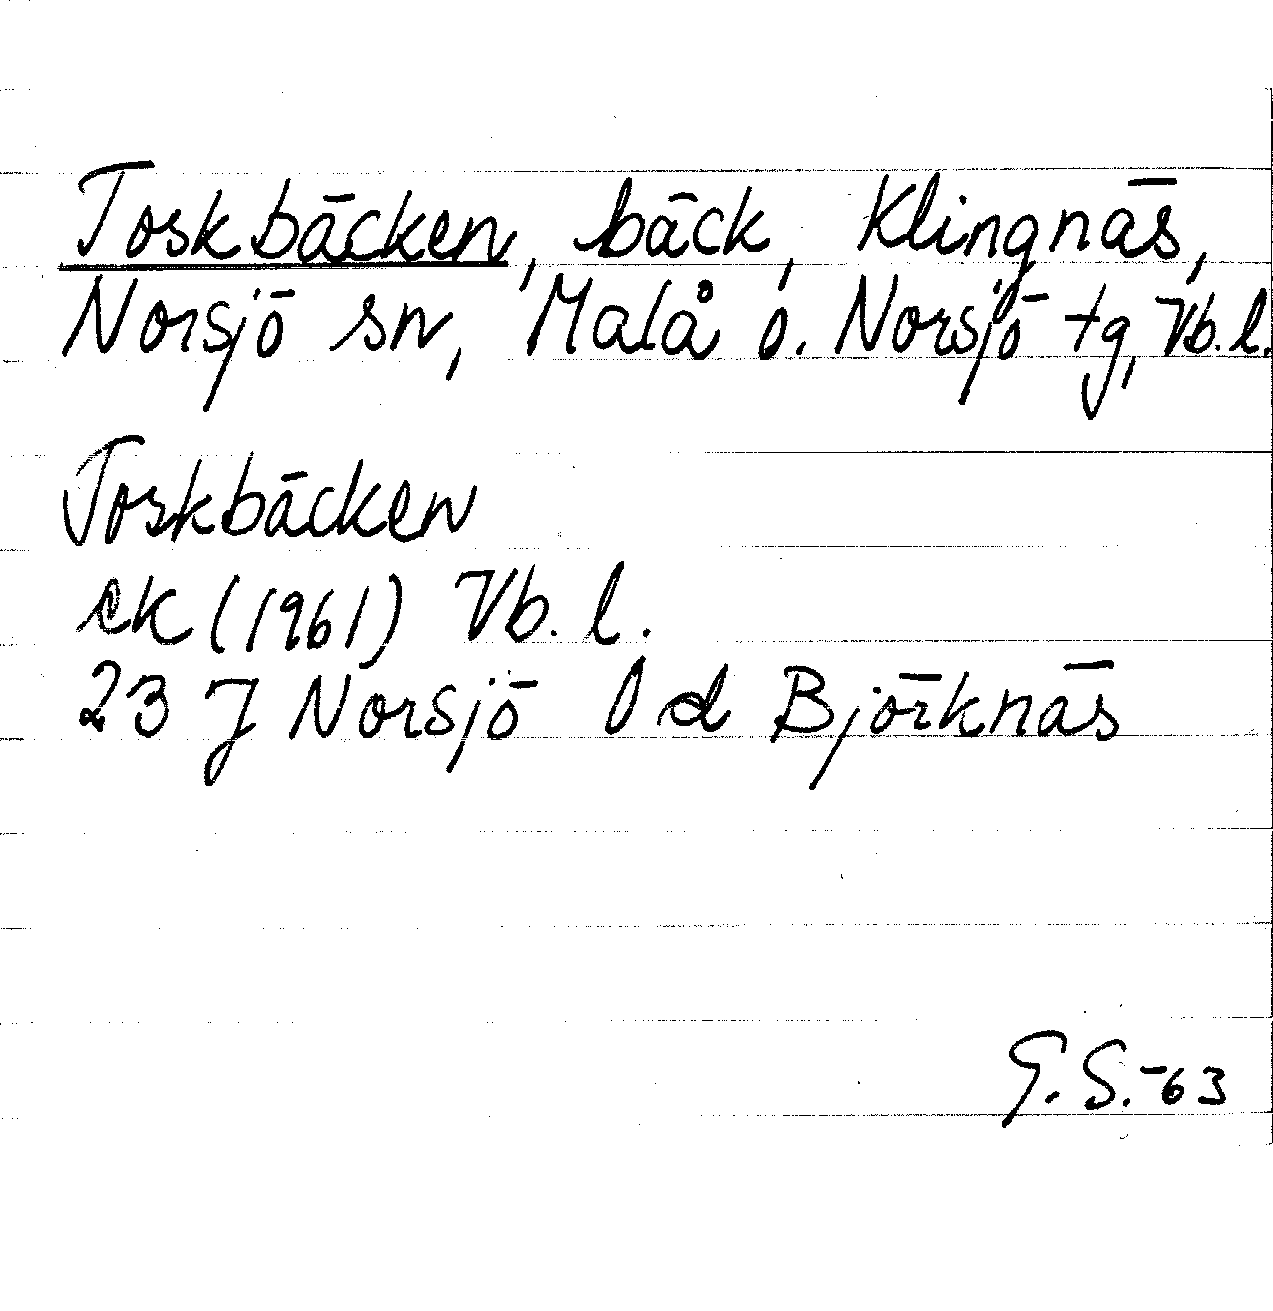 Toskbäcken, bäck, Klingnäs,
Norsjö sn, Malå o. Norsjö tg, Vb. l.
Toskbäcken
ek (1961) Vb. l.
23 J Norsjö 0 d Björknäs
G. S. -63